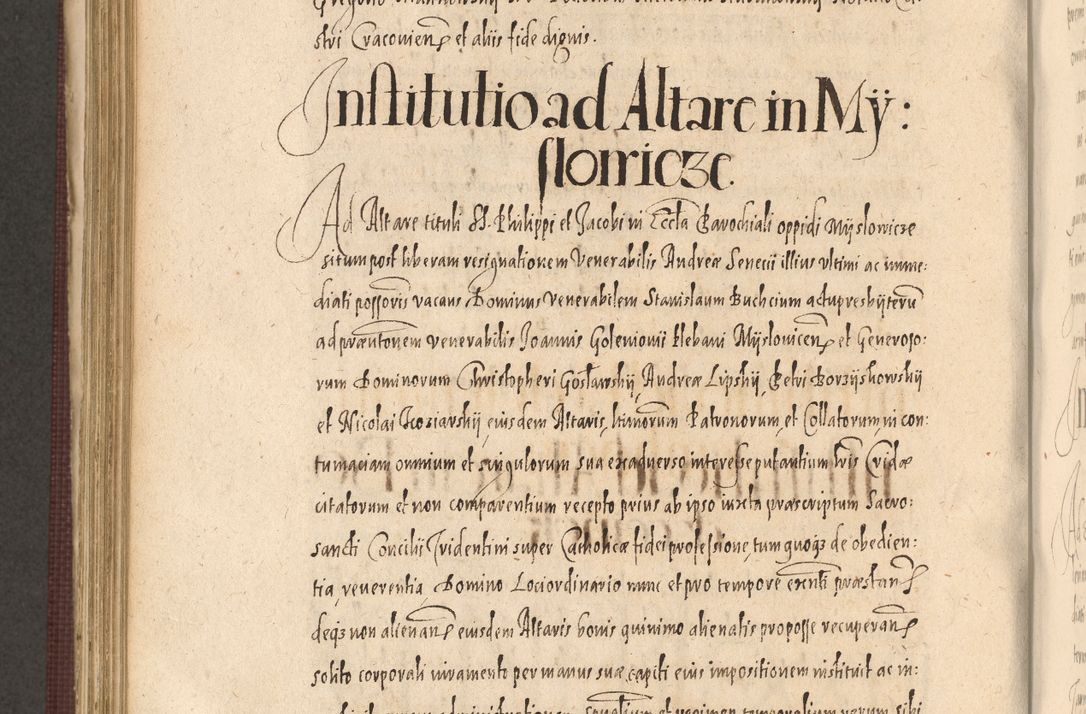 stri Cracovien et aliis fide dignis.
Institutio ad Altare in Mÿ:
slowicze.
Ad Altare tituli SS. Philippi et Jacobi in Eccla Parochiali oppidi Mÿslowicze
situm post liberam resignationem Venerabilis Andreæ Senecii illius vltimi ac imme:
diati possoris vacans Dominus Venerabilem Stanislaum Buchcium ad upresbÿterũ
ad præntonem venerabilis Joannis Goleniovii Plebani Mÿslovicen et Generoso:
rum Dominorum Christopheri Goslawskÿ Andreæ Lipskÿ, Petri Borzÿskowskÿ
et Nicolai Koziarskÿ eiusdem Altaris, ltimorum Patronorum, et Collatorum, in con:
tumaciam omnium et singulorum sua exadverso interesse putantium lris Cridæ
citatorum et non comparentium recepto prius ab ipso iuxta præscriptum Sacro:
sancti Concilii Tridentini super Catholicæ fidei professione, tum quoqz de obedien:
tia, reverentia, Domino Lociordinario nunc et pro tempore exnti præstan
deqz non alienan eiusdem Altaris bonis quinimo alienatis proposse recuperan
solito corporali iuramento per manus suæ capiti eius impositionem instituit ac in: